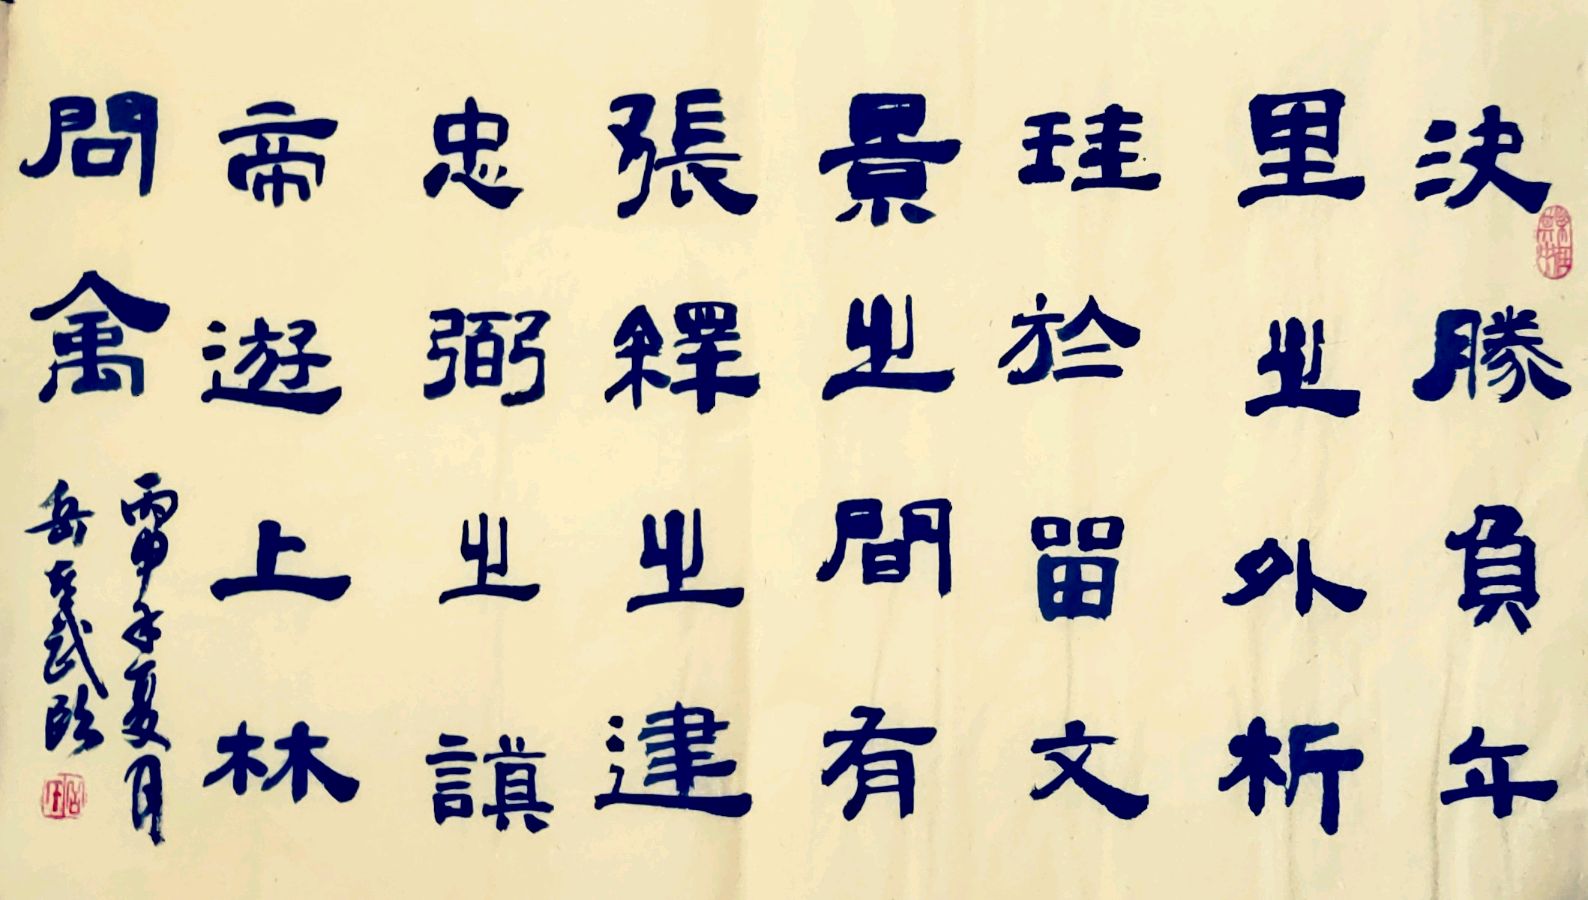 決勝負年
里之外析
珪於留文
景之間有
張釋之建
忠弼之謨
帝遊上林
問禽
丙申年夏月
岳